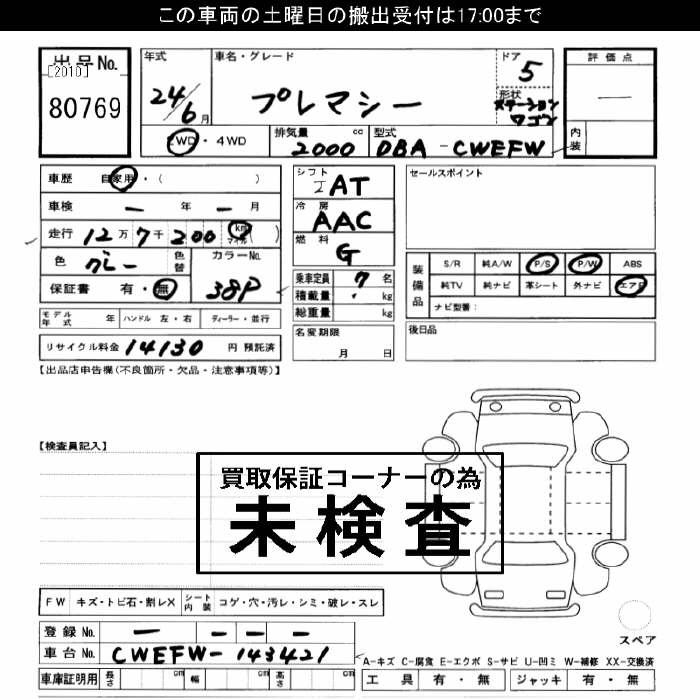 この車両の土曜日の搬出受付は17:00まで
出品No.
[2010]
80769
年式
24/6月
車名・グレード
プレマシー
ドア
5
形状
ステーション
ワゴン
評価点
—
内装
2WD・4WD
排気量 2000 cc
型式 DBA-CWEFW
車歴 自家用・( )
車検 — 年 — 月
走行 12万7千200 km マイル ( )
色 グレー 色替
カラーNo. 38P
保証書 有・無
シフト
IAT
冷房
AAC
燃料
G
乗車定員 7 名
積載量 ・ kg
総重量 kg
名変期限
月 日
セールスポイント
装備品
S/R 純A/W P/S P/W ABS
純TV 純ナビ 革シート 外ナビ エアB
ナビ型番:
後日品
モデル年式 年 ハンドル 左・右 ディーラー・並行
リサイクル料金 14130 円 預託済
【出品店申告欄(不良箇所・欠品・注意事項等)】
【検査員記入】
買取保証コーナーの為
未検査
FW キズ・トビ石・割レX シート内装 コゲ・穴・汚レ・シミ・破レ・スレ
登録No. — — — —
車台No. CWEFW-143421
車庫証明用 長さ cm 幅 cm 高さ cm
スペア
A-キズ C-腐食 E-エクボ S-サビ U-凹ミ W-補修 XX-交換済
工具 有・無 ジャッキ 有・無